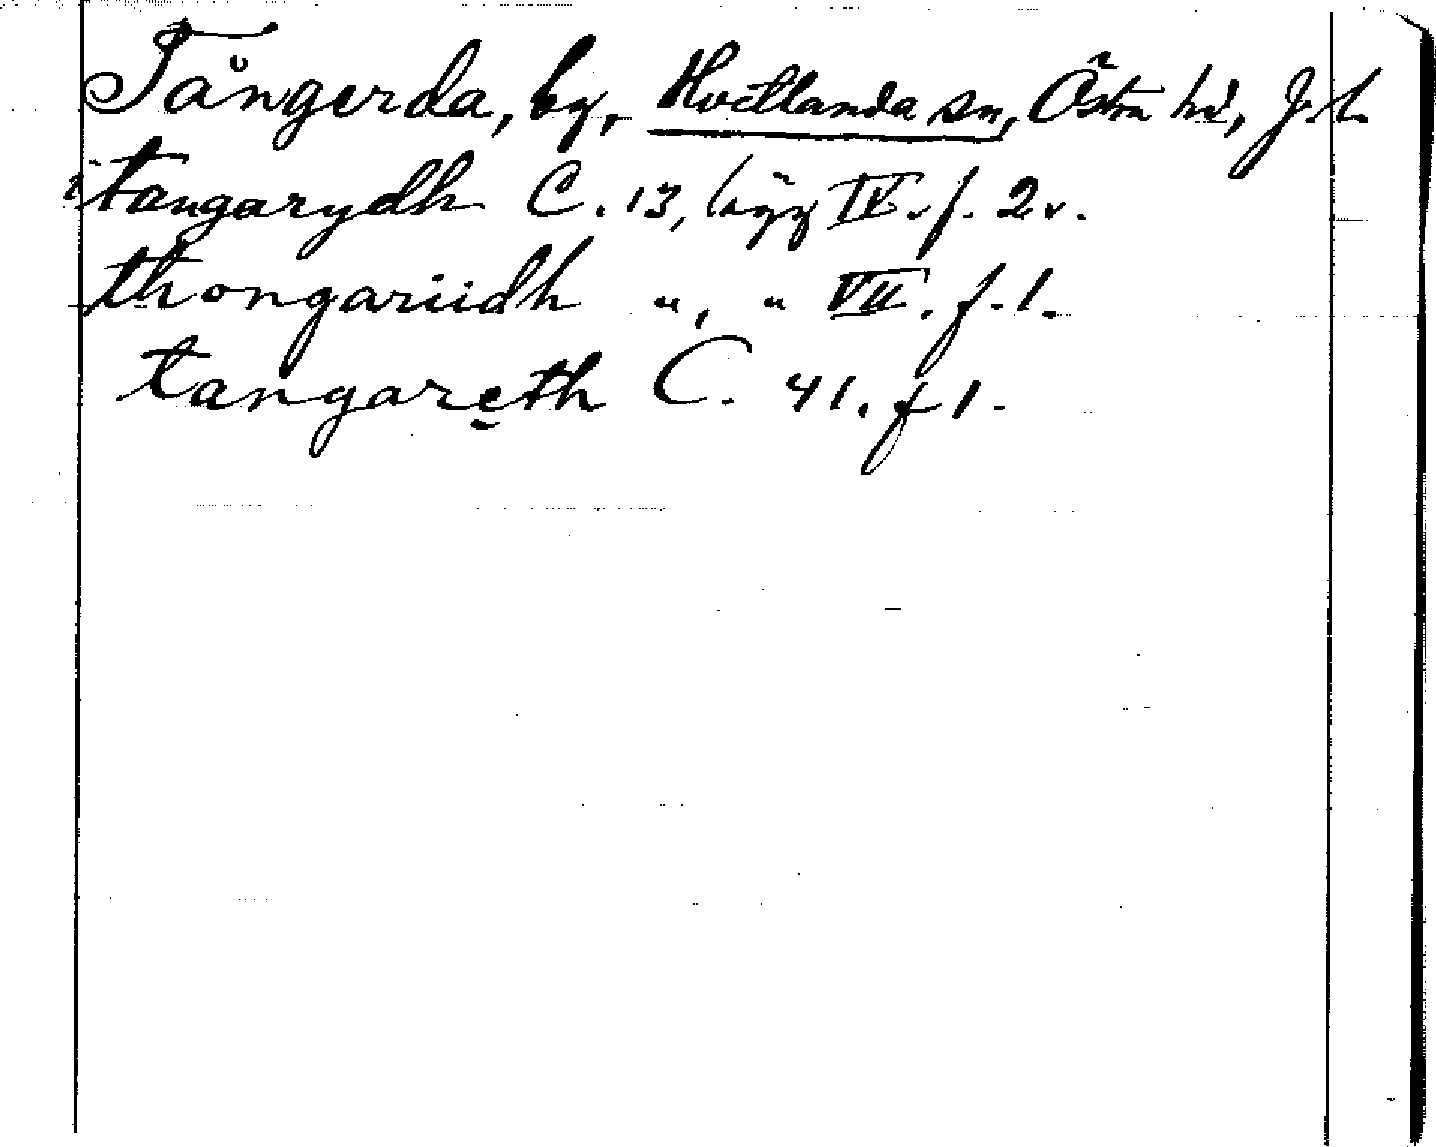 Tångerda, by, Hvetlanda sn, Östra hd, J. l.
i tangarydh C. 13, lägg IV. f. 2 v.
thongariidh ", " VII. f. 1.
tangareth C. 41. f 1.